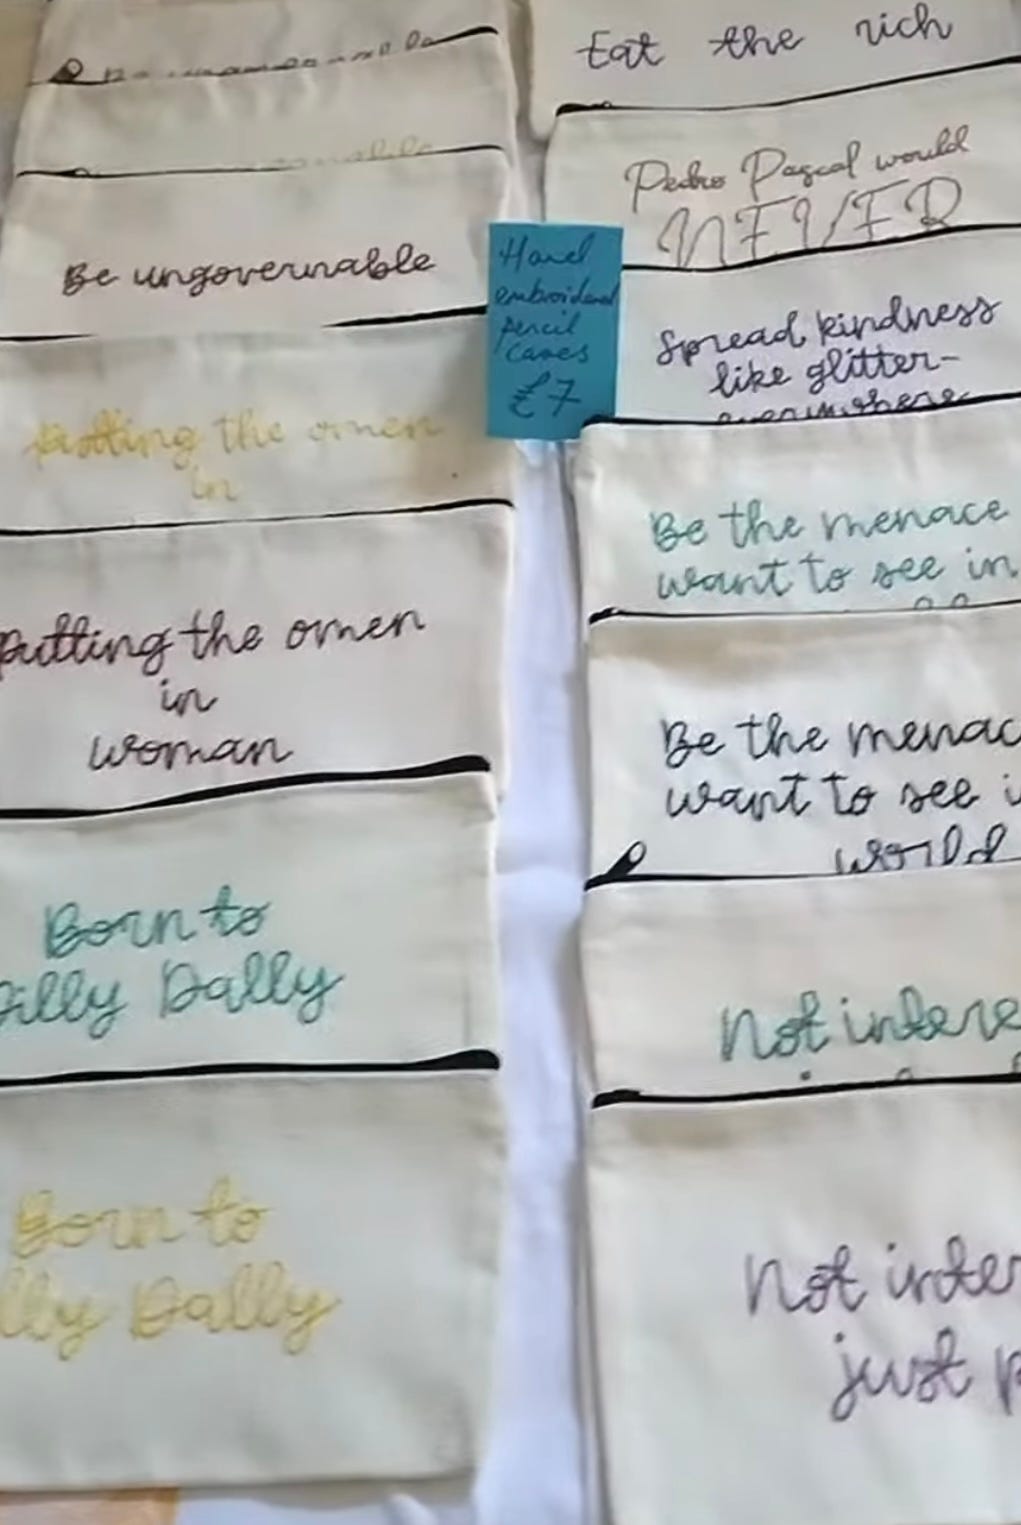 Be ungovernable
Putting the omen
in
Putting the omen
in
woman
Born to
Dilly Dally
Born to
lly Dally
Hand
embroidered
pencil
cases
£7
Eat the rich
Pedro Pascal would
Spread kindness
like glitter-
everywhere
Be the menace
want to see in
Be the menac
want to see i
world
Not intere
Not inter
just p